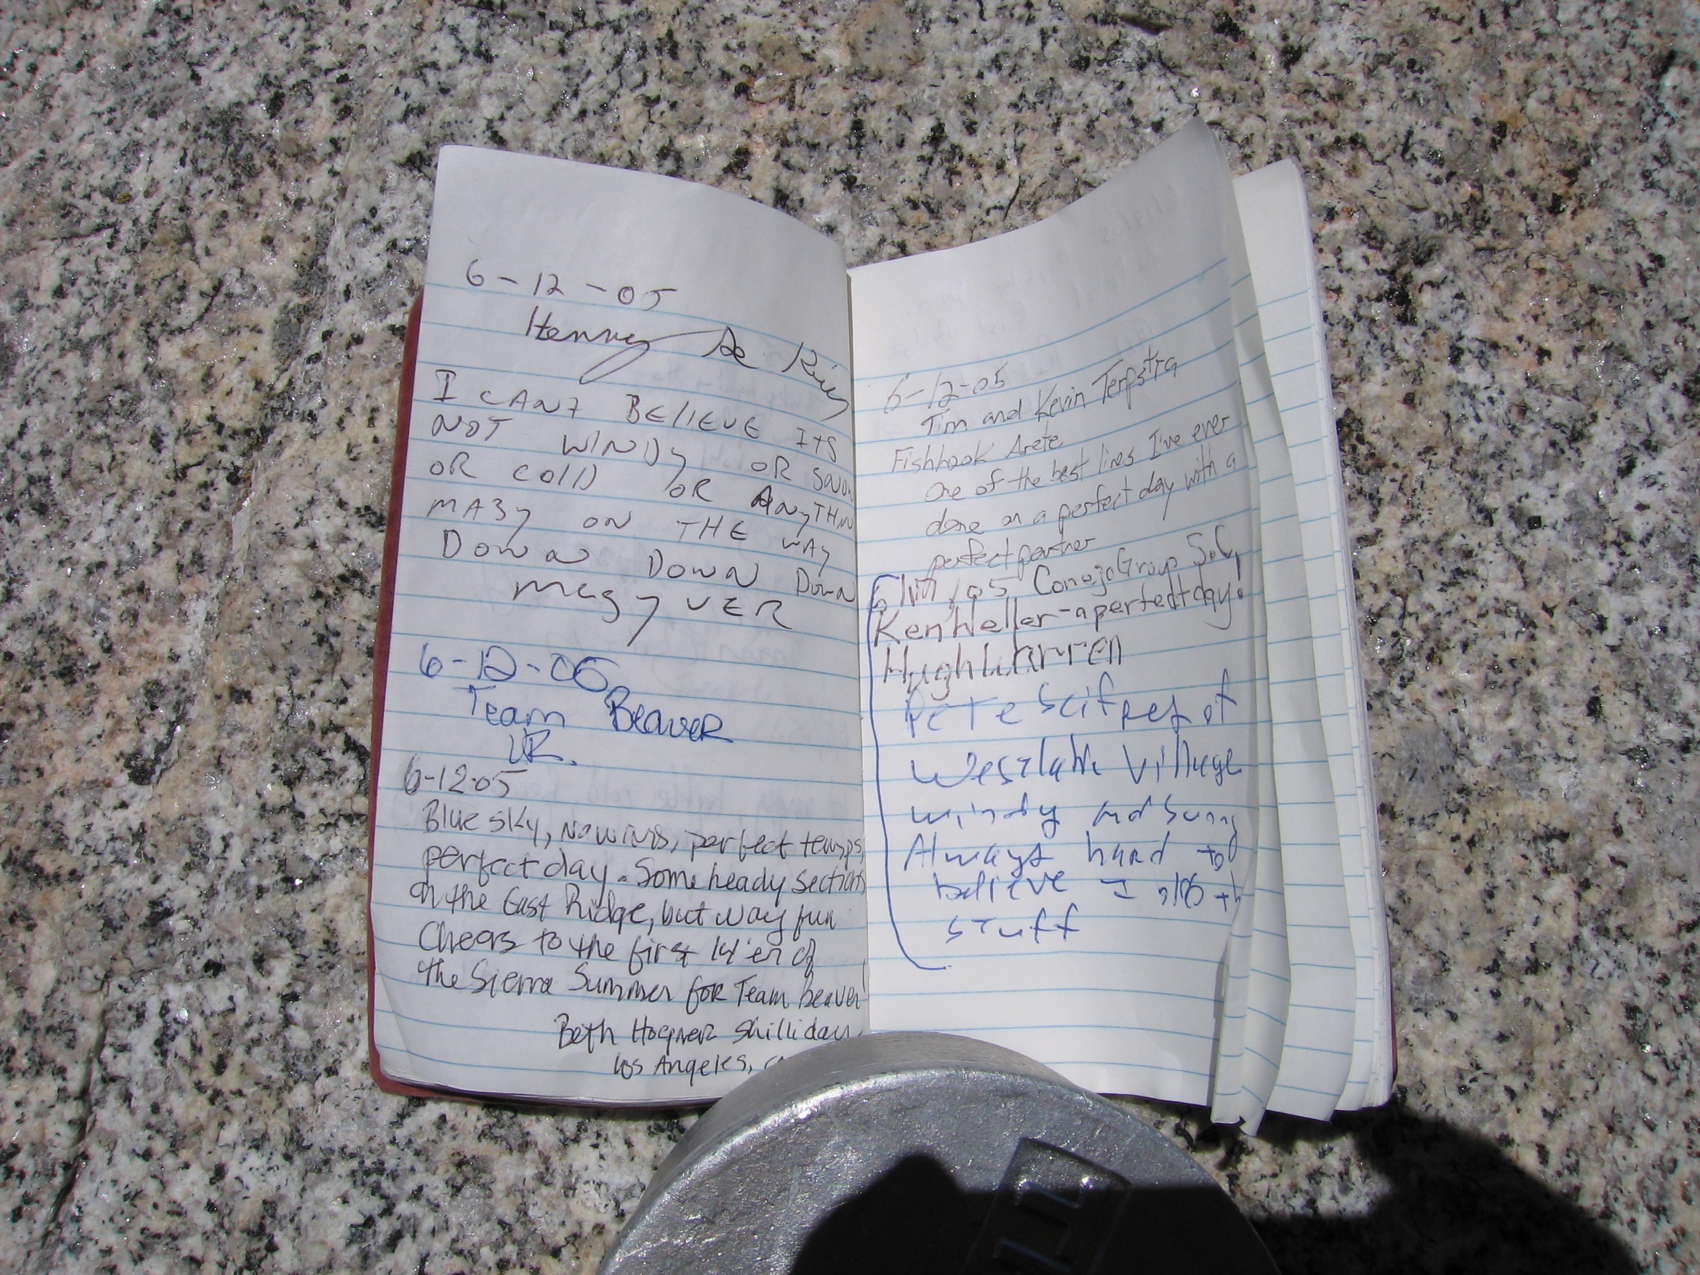 6-12-05
Henry De
I CANT BELIEVE ITS
NOT WINDY OR
OR COLD OR
ON THE WAY
DOWN DOWN DOWN
6-12-05
Team BEAVER
6-12-05
Blue sky, no winds, perfect temps,
perfect day. Some heady sections
on the East Ridge, but way fun
Cheers to the first 14'er of
the Sierra Summer for Team Beaver
Beth Shilliday
Los Angeles,
6-12-05
Tim and Kevin Terpstra
Fishhook Arete
One of the best lines I've ever
done on a perfect day with a
perfect partner
05 Conejo Group S.C.
Ken Heller - a perfect day!
Hugh Warren
Pete of
Westlake Village
windy and sunny
Always hard to
believe I
stuff